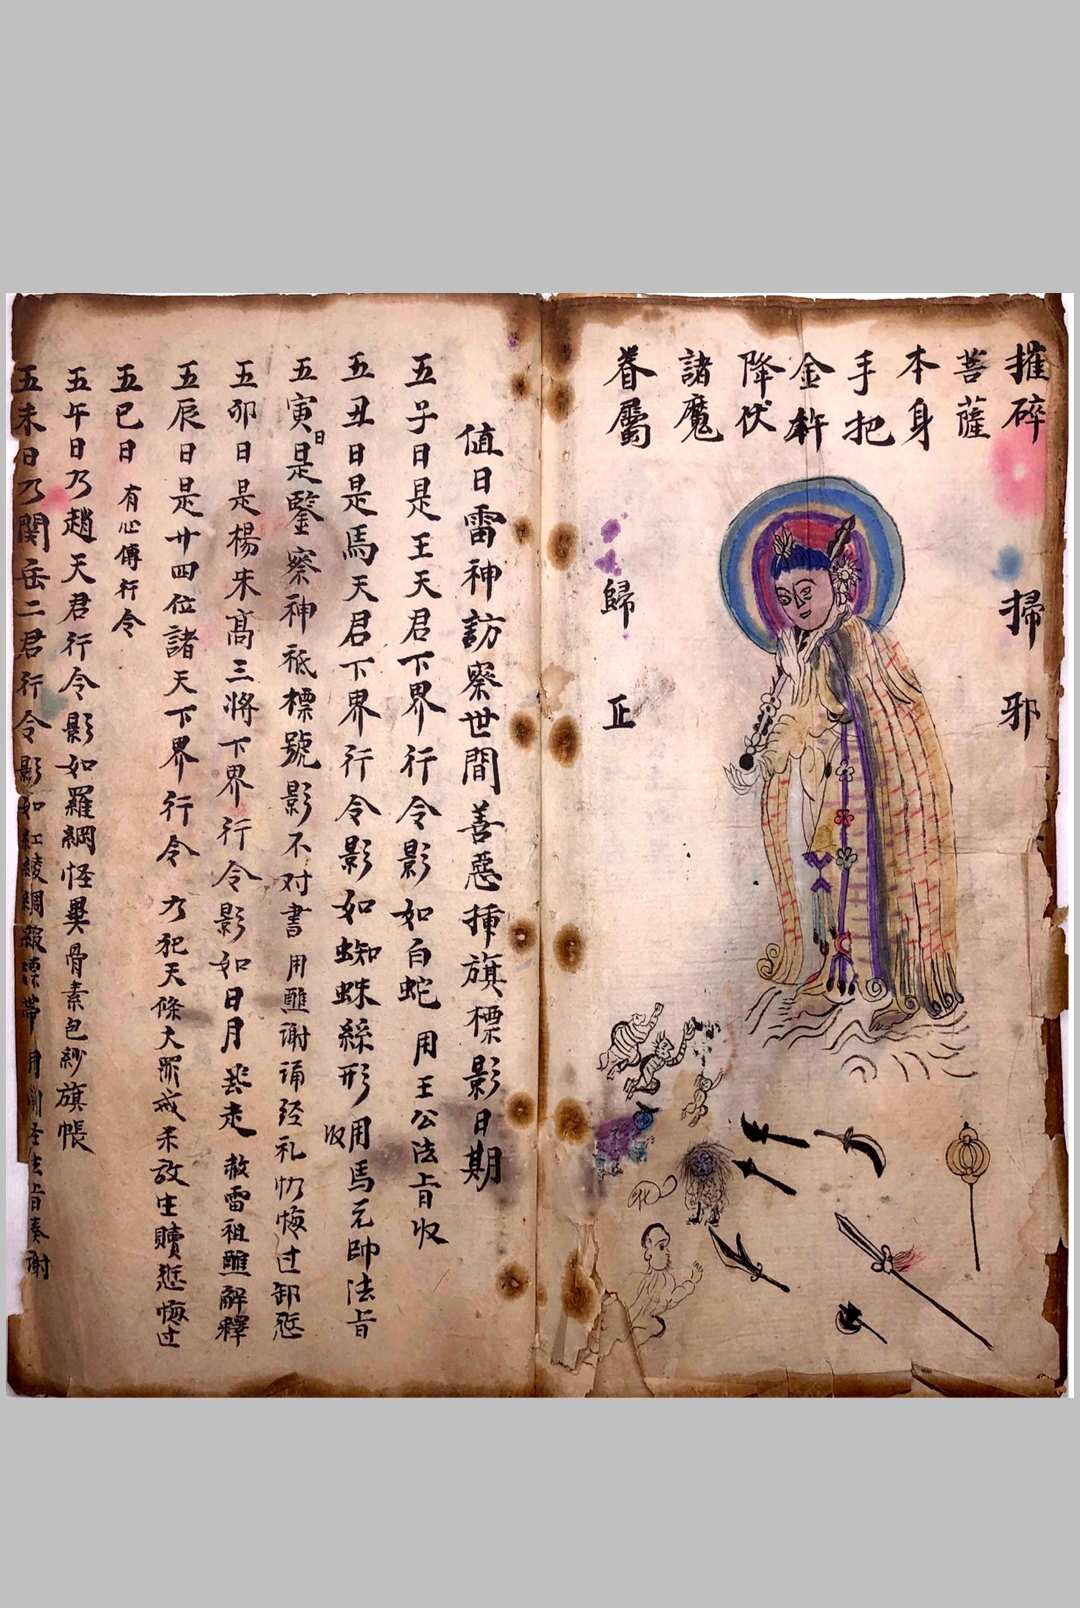 摧碎
菩薩
本身
手把
金杵
降伏
諸魔
眷屬
掃邪
歸正
值日雷神訪察世間善惡揷旗標影日期
五子日是王天君下界行令影如白蛇 用王公法旨收
五丑日是馬天君下界行令影如蜘蛛絲形 用馬元帥法旨收
五寅日是鑒察神祗標號影不对書 用醮谢诵经礼忏悔过卸愆
五卯日是楊朱高三将下界行令影如日月 赦雷祖醮解釋
五辰日是廿四位諸天下界行令 乃犯天條大罪戒杀放生贖愆悔过
五巳日 有心傳行令
五午日乃趙天君行令影如羅網怪異骨素包紗旗帳
五未日乃関岳二君行令影如紅綾綢緞漂帶